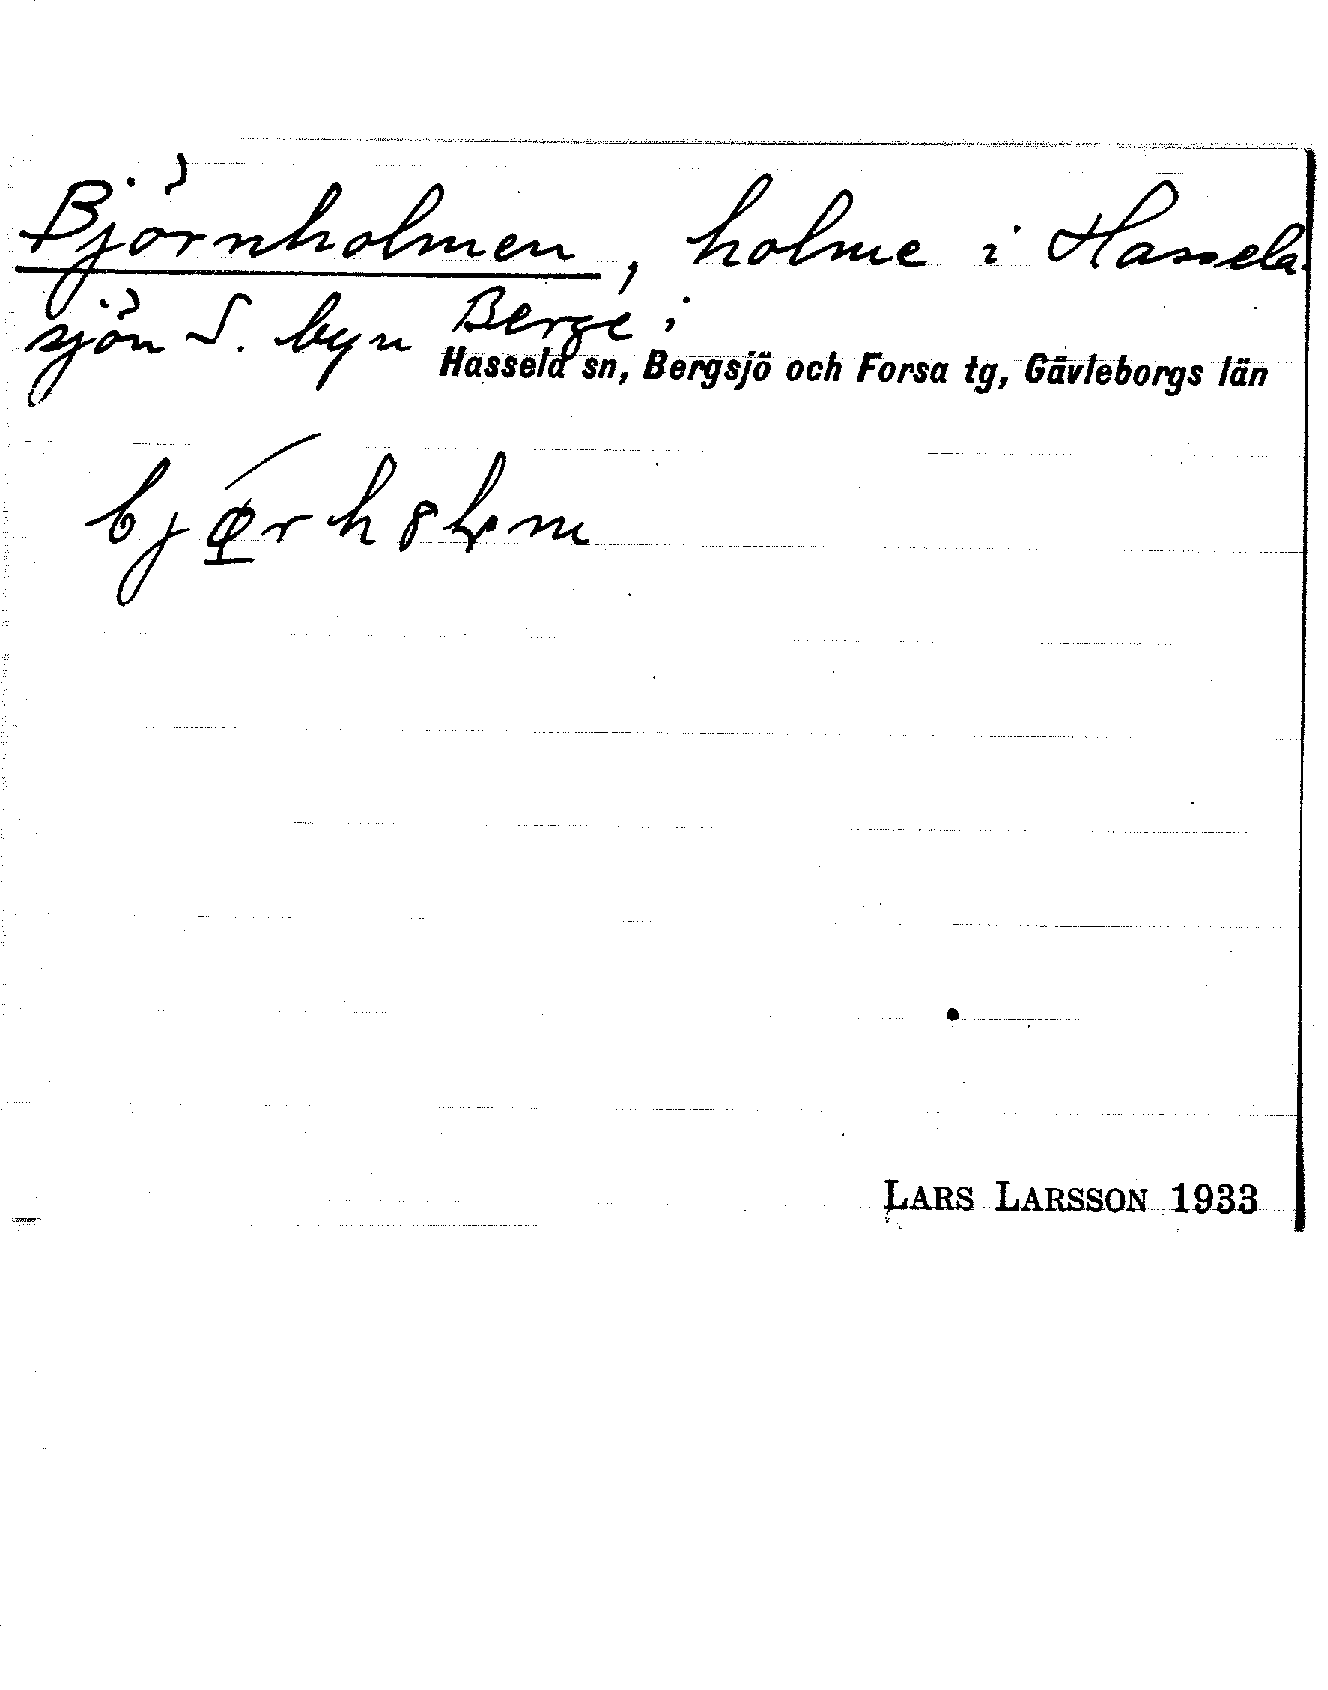 Björnholmen, holme i Hassela-
sjön S. byn Berge i
Hassela sn, Bergsjö och Forsa tg, Gävleborgs län
LARS LARSSON 1933